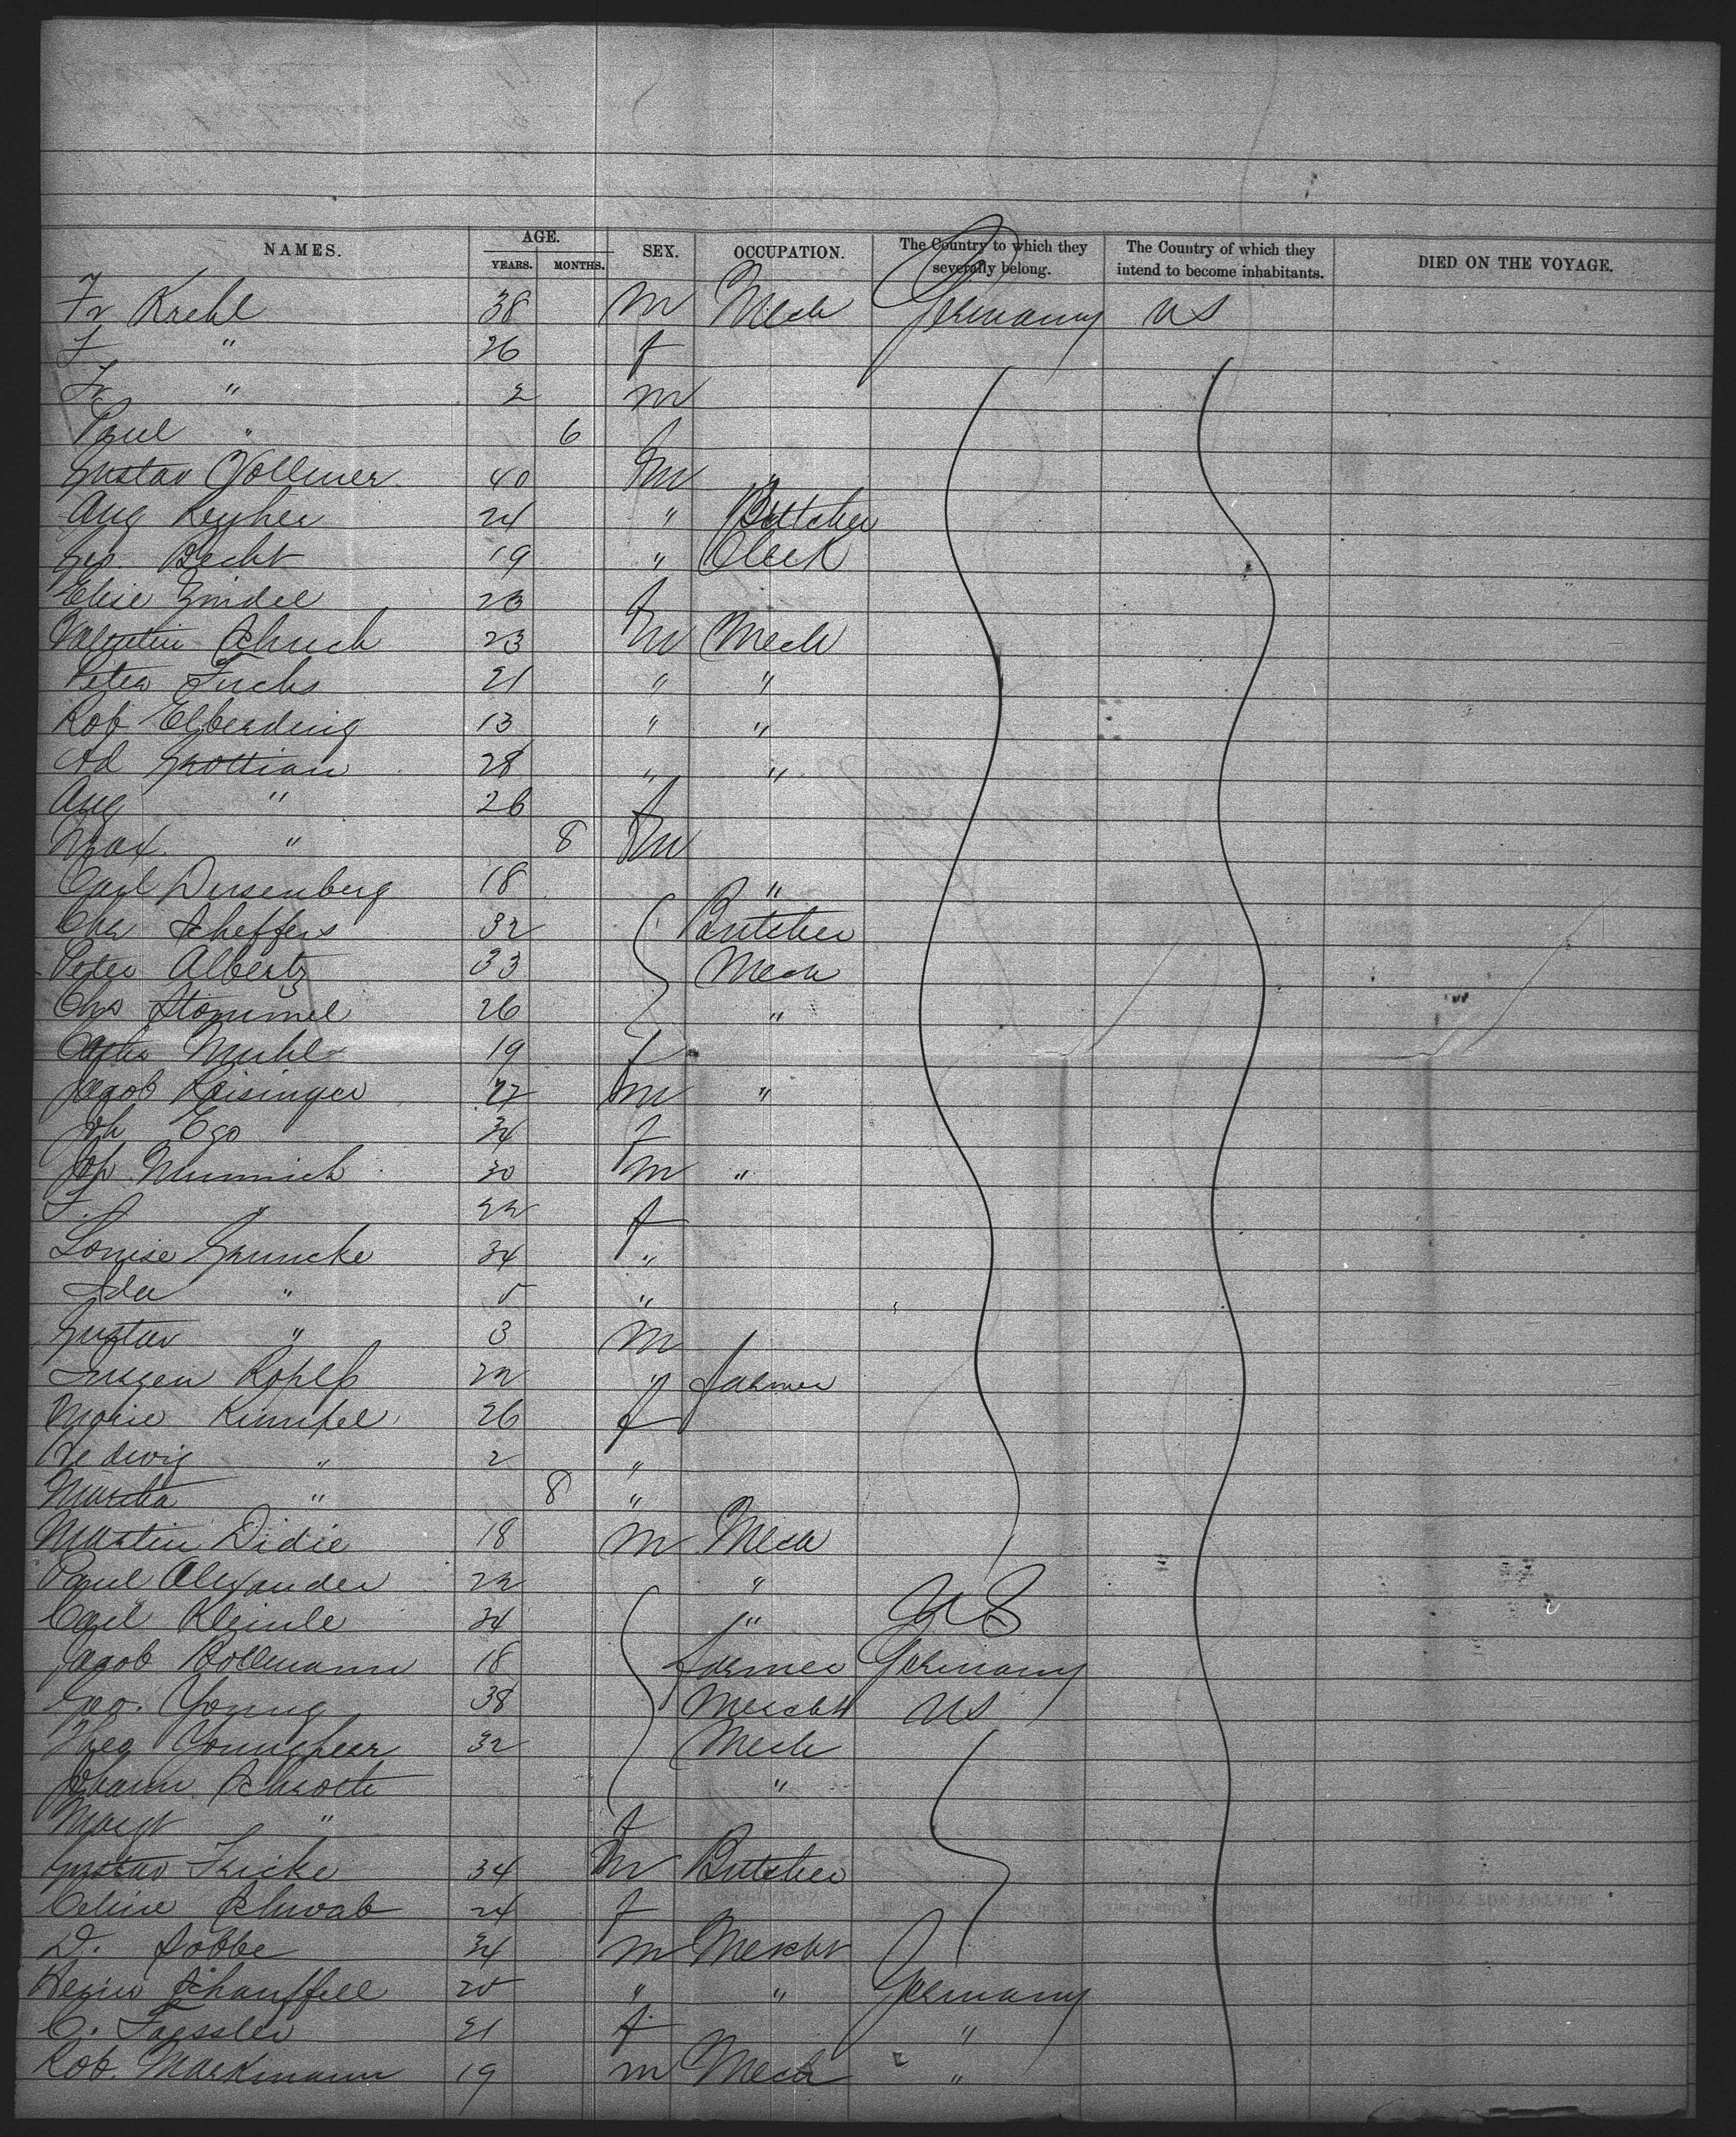 NAMES. AGE. YEARS. MONTHS. SEX. OCCUPATION. The Country to which they severally belong. The Country of which they intend to become inhabitants. DIED ON THE VOYAGE.
Fr Krehl 38 m Mech Germany US
F " 26 f
Fr " 2 m
Paul " 6
Gustav Vollmer 40 m "
Aug Keyher 24 " Butcher
Geo. Becht 19 " Clerk
Elise Zindel 23 f
Valentin Schuch 23 m Mech
Peter Fuchs 21 " "
Rob Elberding 13 " "
Ad Grottian 28 " "
Aug " 26 f
Max " 8 m
Carl Dursenberg 18 "
Chr Scheffers 32 Butcher
Peter Albertz 33 Mech
Chs Stommel 26 "
Muhl 19 f
Jacob Raisinger 27 m "
Joh Ego 34 f
Joh. Munnich 30 m "
F. " 22 f
Louise Gruncke 34 "
Ida " 5 "
Gustav " 3 m
Eugen Kohls 22 " farmer
Marie Kumpel 26 f
Hedwig " 2 "
Martha " 8 "
Martin Didie 18 m Mech
Paul Alexander 22 "
Carl Kleinle 34 " US
Jacob Bollmann 18 farmer Germany
Geo. Young 38 Mercht US
Theo Youngheer 32 Mech
Johann Schroth "
Margt " f
Gustav Fricke 34 m Butcher
Celine Schwab 24 f
D. Sobbe 34 m Mercht
Heinr Schauffell 25 " " Germany
C. Faessler 21 f "
Rob. Markmann 19 m Mech "